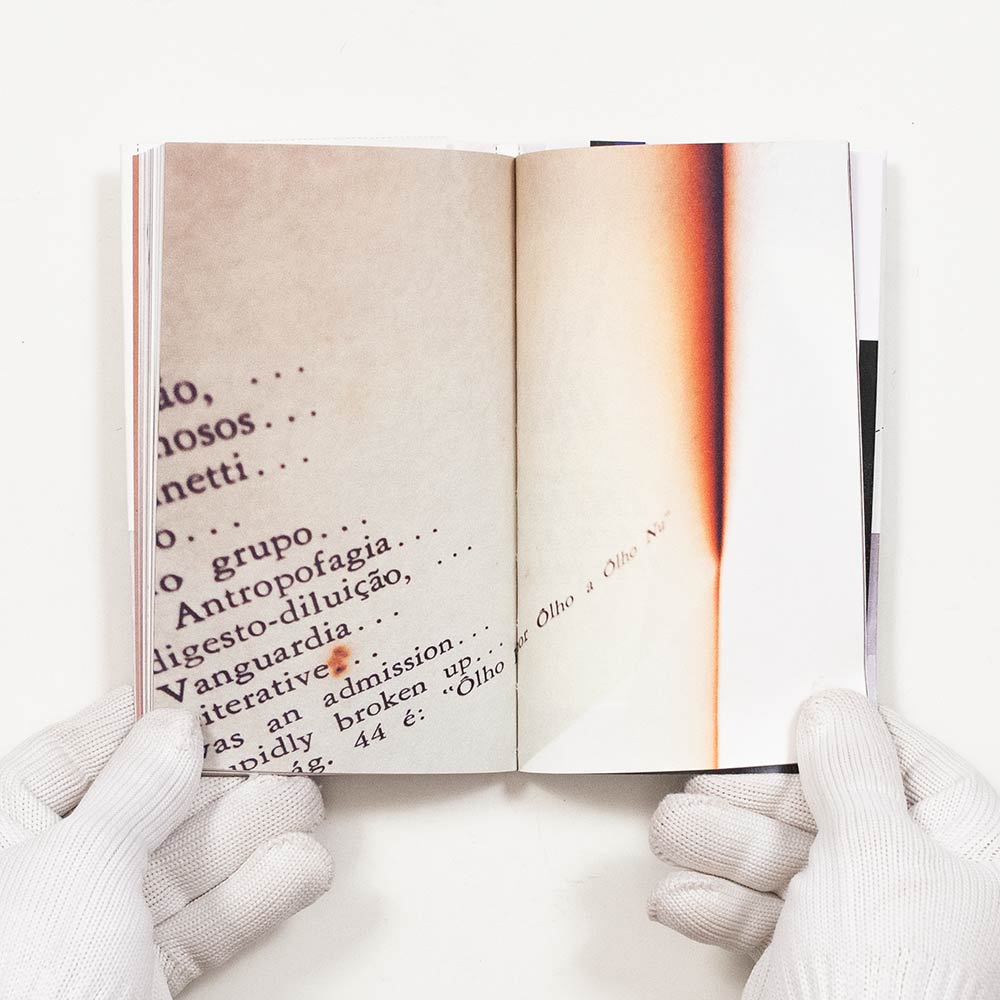 ão, ...
nosos...
inetti...
o...
o grupo...
Antropofagia...
digesto-diluição, ...
Vanguardia...
iterative...
was an admission...
upidly broken up...
ág. 44 é: "Ôlho por Ôlho a Ôlho Nu"